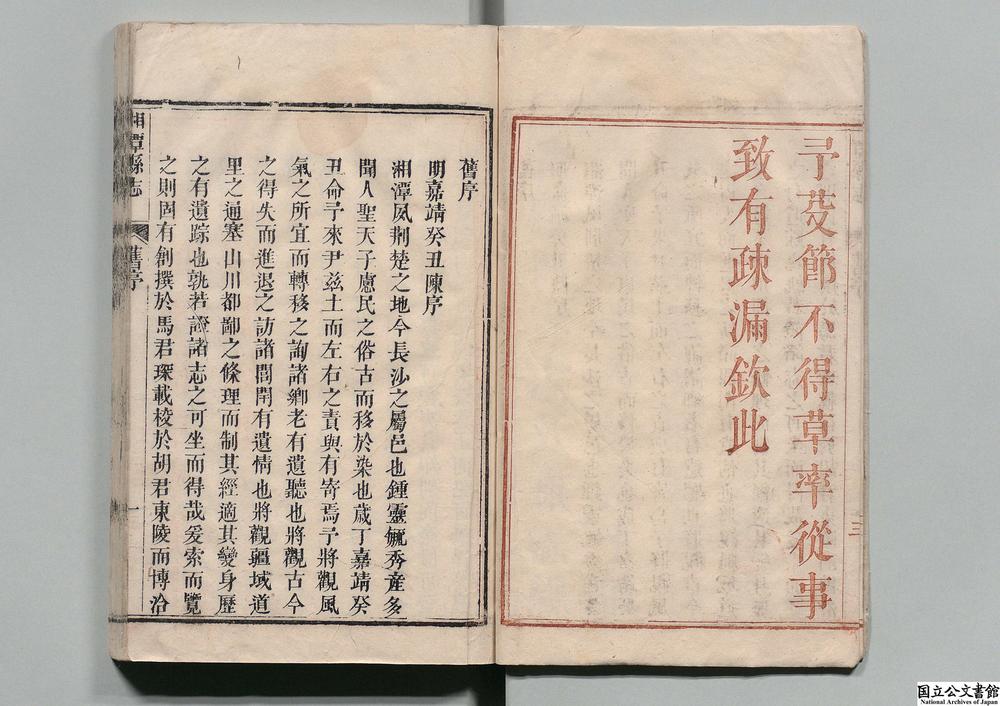 予芟節不得草率從事
致有疎漏欽此
三
舊序
明嘉靖癸丑陳序
湘潭夙荆楚之地今長沙之屬邑也鍾靈毓秀産多
聞人聖天子慮民之俗古而移於染也歳丁嘉靖癸
丑命予來尹兹土而左右之責與有寄焉予將觀風
氣之所宜而轉移之詢諸鄉老有遺聽也將觀古今
之得失而進退之訪諸閭閈有遺情也將觀疆域道
里之通塞山川都鄙之條理而制其經適其變身歷
之有遺踪也孰若證諸志之可坐而得哉爰索而覽
之則固有創撰於馬君琛載校於胡君東陵而博洽
湘潭縣志
舊序
一
国立公文書館
National Archives of Japan